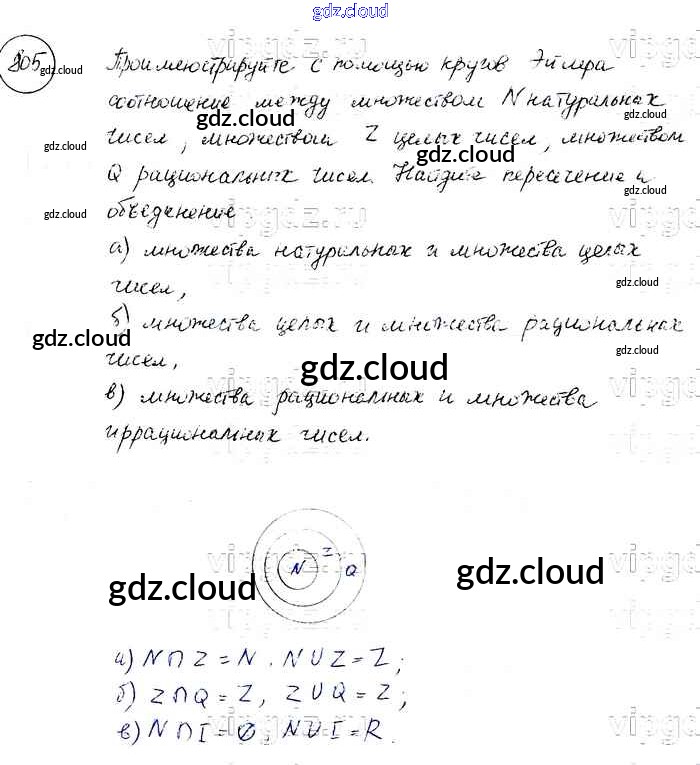 gdz.cloud
805 Проиллюстрируйте с помощью кругов Эйлера
gdz.cloud
соотношение между множеством N натуральных
gdz.cloud
чисел, множеством Z целых чисел, множеством
gdz.cloud gdz.cloud gdz.cloud
Q рациональных чисел. Найдите пересечение и
gdz.cloud
объединение
gdz.cloud gdz.cloud
vipgdz.ru
а) множества натуральных и множества целых
чисел,
gdz.cloud
б) множества целых и множества рациональных
gdz.cloud
чисел,
gdz.cloud gdz.cloud
в) множества рациональных и множества
иррациональных чисел.
N Z Q
gdz.cloud gdz.cloud
а) N ∩ Z = N, N ∪ Z = Z;
б) Z ∩ Q = Z, Z ∪ Q = Z;
в) N ∩ I = ∅, N ∪ I = R.